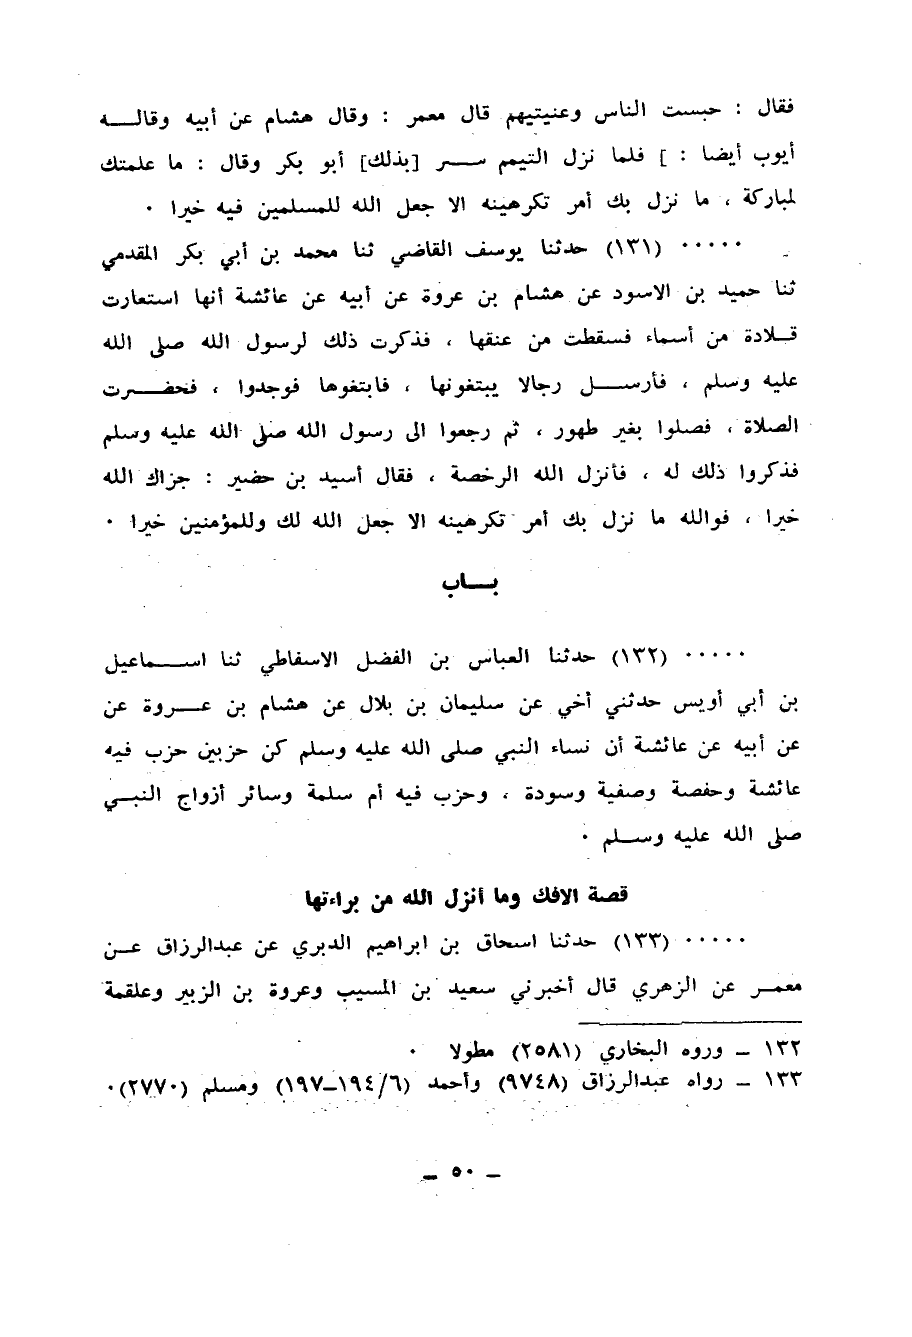 فقال : حبست الناس وعنيتيهم قال معمر : وقال هشام عن أبيه وقالـــه
أيوب أيضا : ] فلما نزل التيمم ســـر [بذلك] أبو بكر وقال : ما علمتك
لمباركة ، ما نزل بك أمر تكرهينه الا جعل الله للمسلمين فيه خيرا ٠
٠٠٠٠٠ (١٣١) حدثنا يوسف القاضي ثنا محمد بن أبي بكر المقدمي
ثنا حميد بن الاسود عن هشام بن عروة عن أبيه عن عائشة أنها استعارت
قـــلادة من أسماء فسقطت من عنقها ، فذكرت ذلك لرسول الله صلى الله
عليه وسلم ، فأرســـل رجالا يبتغونها ، فابتغوها فوجدوا ، فحضـــرت
الصلاة ، فصلوا بغير طهور ، ثم رجعوا الى رسول الله صلى الله عليه وسلم
فذكروا ذلك له ، فأنزل الله الرخصة ، فقال أسيد بن حضير : جزاك الله
خيرا ، فوالله ما نزل بك أمر تكرهينه الا جعل الله لك وللمؤمنين خيرا ٠
بـــاب
٠٠٠٠٠ (١٣٢) حدثنا العباس بن الفضل الاسفاطي ثنا اســـماعيل
بن أبي أويس حدثني أخي عن سليمان بن بلال عن هشام بن عـــروة عن
عن أبيه عن عائشة أن نساء النبي صلى الله عليه وسلم كن حزبين حزب فيه
عائشة وحفصة وصفية وسودة ، وحزب فيه أم سلمة وسائر أزواج النبـــي
صلى الله عليه وســـلم ٠
قصة الافك وما أنزل الله من براءتها
٠٠٠٠٠ (١٣٣) حدثنا اسحاق بن ابراهيم الدبري عن عبدالرزاق عـــن
معمـــر عن الزهري قال أخبرني سعيد بن المسيب وعروة بن الزبير وعلقمة
١٣٢ ــ وروه البخاري (٢٥٨١) مطولا ٠
١٣٣ ــ رواه عبدالرزاق (٩٧٤٨) وأحمد (٦/١٩٤ــ١٩٧) ومسلم (٢٧٧٠)٠
ــ ٥٠ ــ